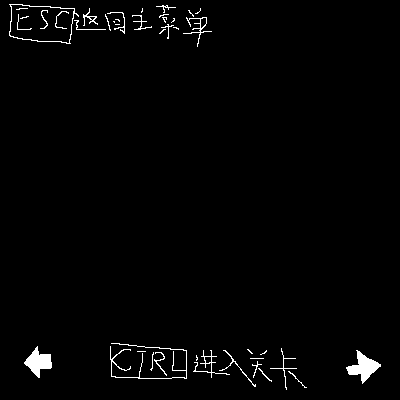 ESC返回主菜单
CTRL进入关卡